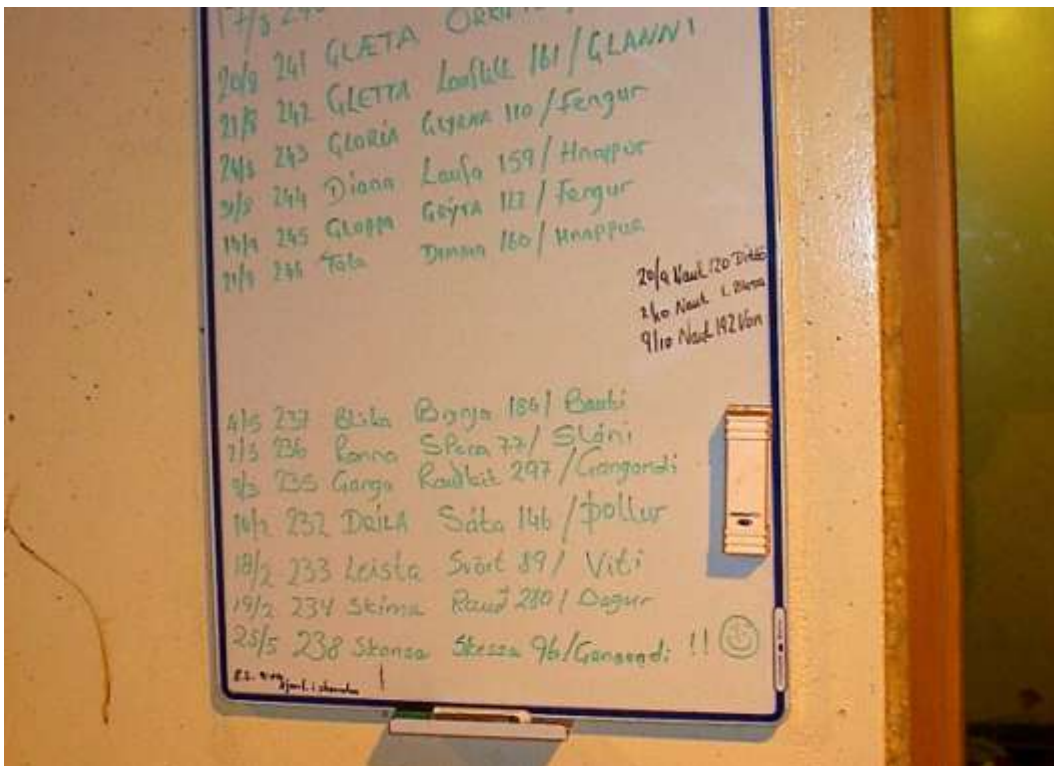 17/8 240
20/8 241 GLÆTA
21/8 242 GLETTA 161/GLANNI
24/8 243 GLORÍA 110/Fengur
31/8 244 Diana Laufa 159/Hnappur
14/9 245 GLOPPA GRÝTA 122/Fengur
21/9 246 Tala DIMMA 160/HNAPPUR
20/9 Naut 120
2/10 Naut
9/10 Naut 192 Von
4/5 237 Blika 186/Bauti
236 Panna Spera 77/Sláni
235 Ganga Rauðkit 297/Gangandi
232 DRÍLA Sáta 146/Þollur
18/2 233 Leista Svört 89/Viti
19/2 234 Skíma Rauð 280/Dagur
25/5 238 Skonsa Skessa 96/Gangandi !!